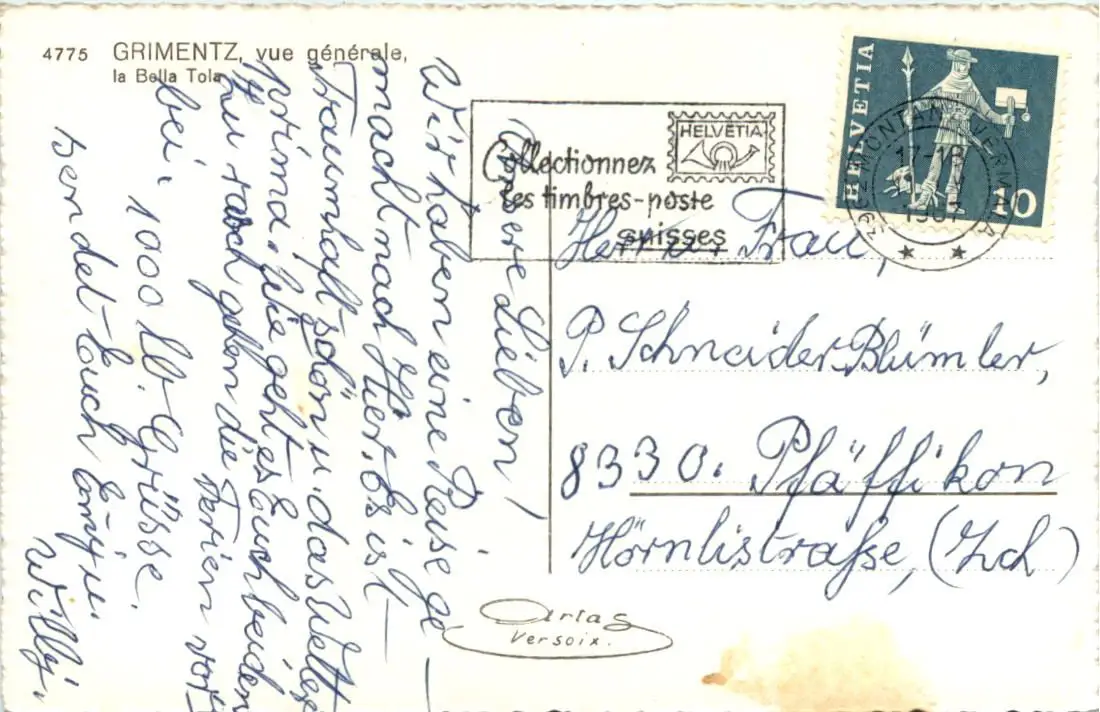 4775 GRIMENTZ, vue générale,
la Bella Tola
Unsere Lieben!
Wir haben eine Reise ge-
macht nach Hier. Es ist
Traumhaft schön u. das Wetter
prima. Wie geht es Euch beiden
zu rasch gehen die Ferien vor-
bei. 1000 lb. Grüsse.
sendet Euch Emy u.
Willy.
HELVETIA
Collectionnez
les timbres-poste
suisses
HELVETIA
10
3962 MONTANA-VERMALA
17-18
Herr u. Frau,
P. Schneider-Blümler,
8330. Pfäffikon
Hörnlistraße, (Zch)
Artas
Versoix.